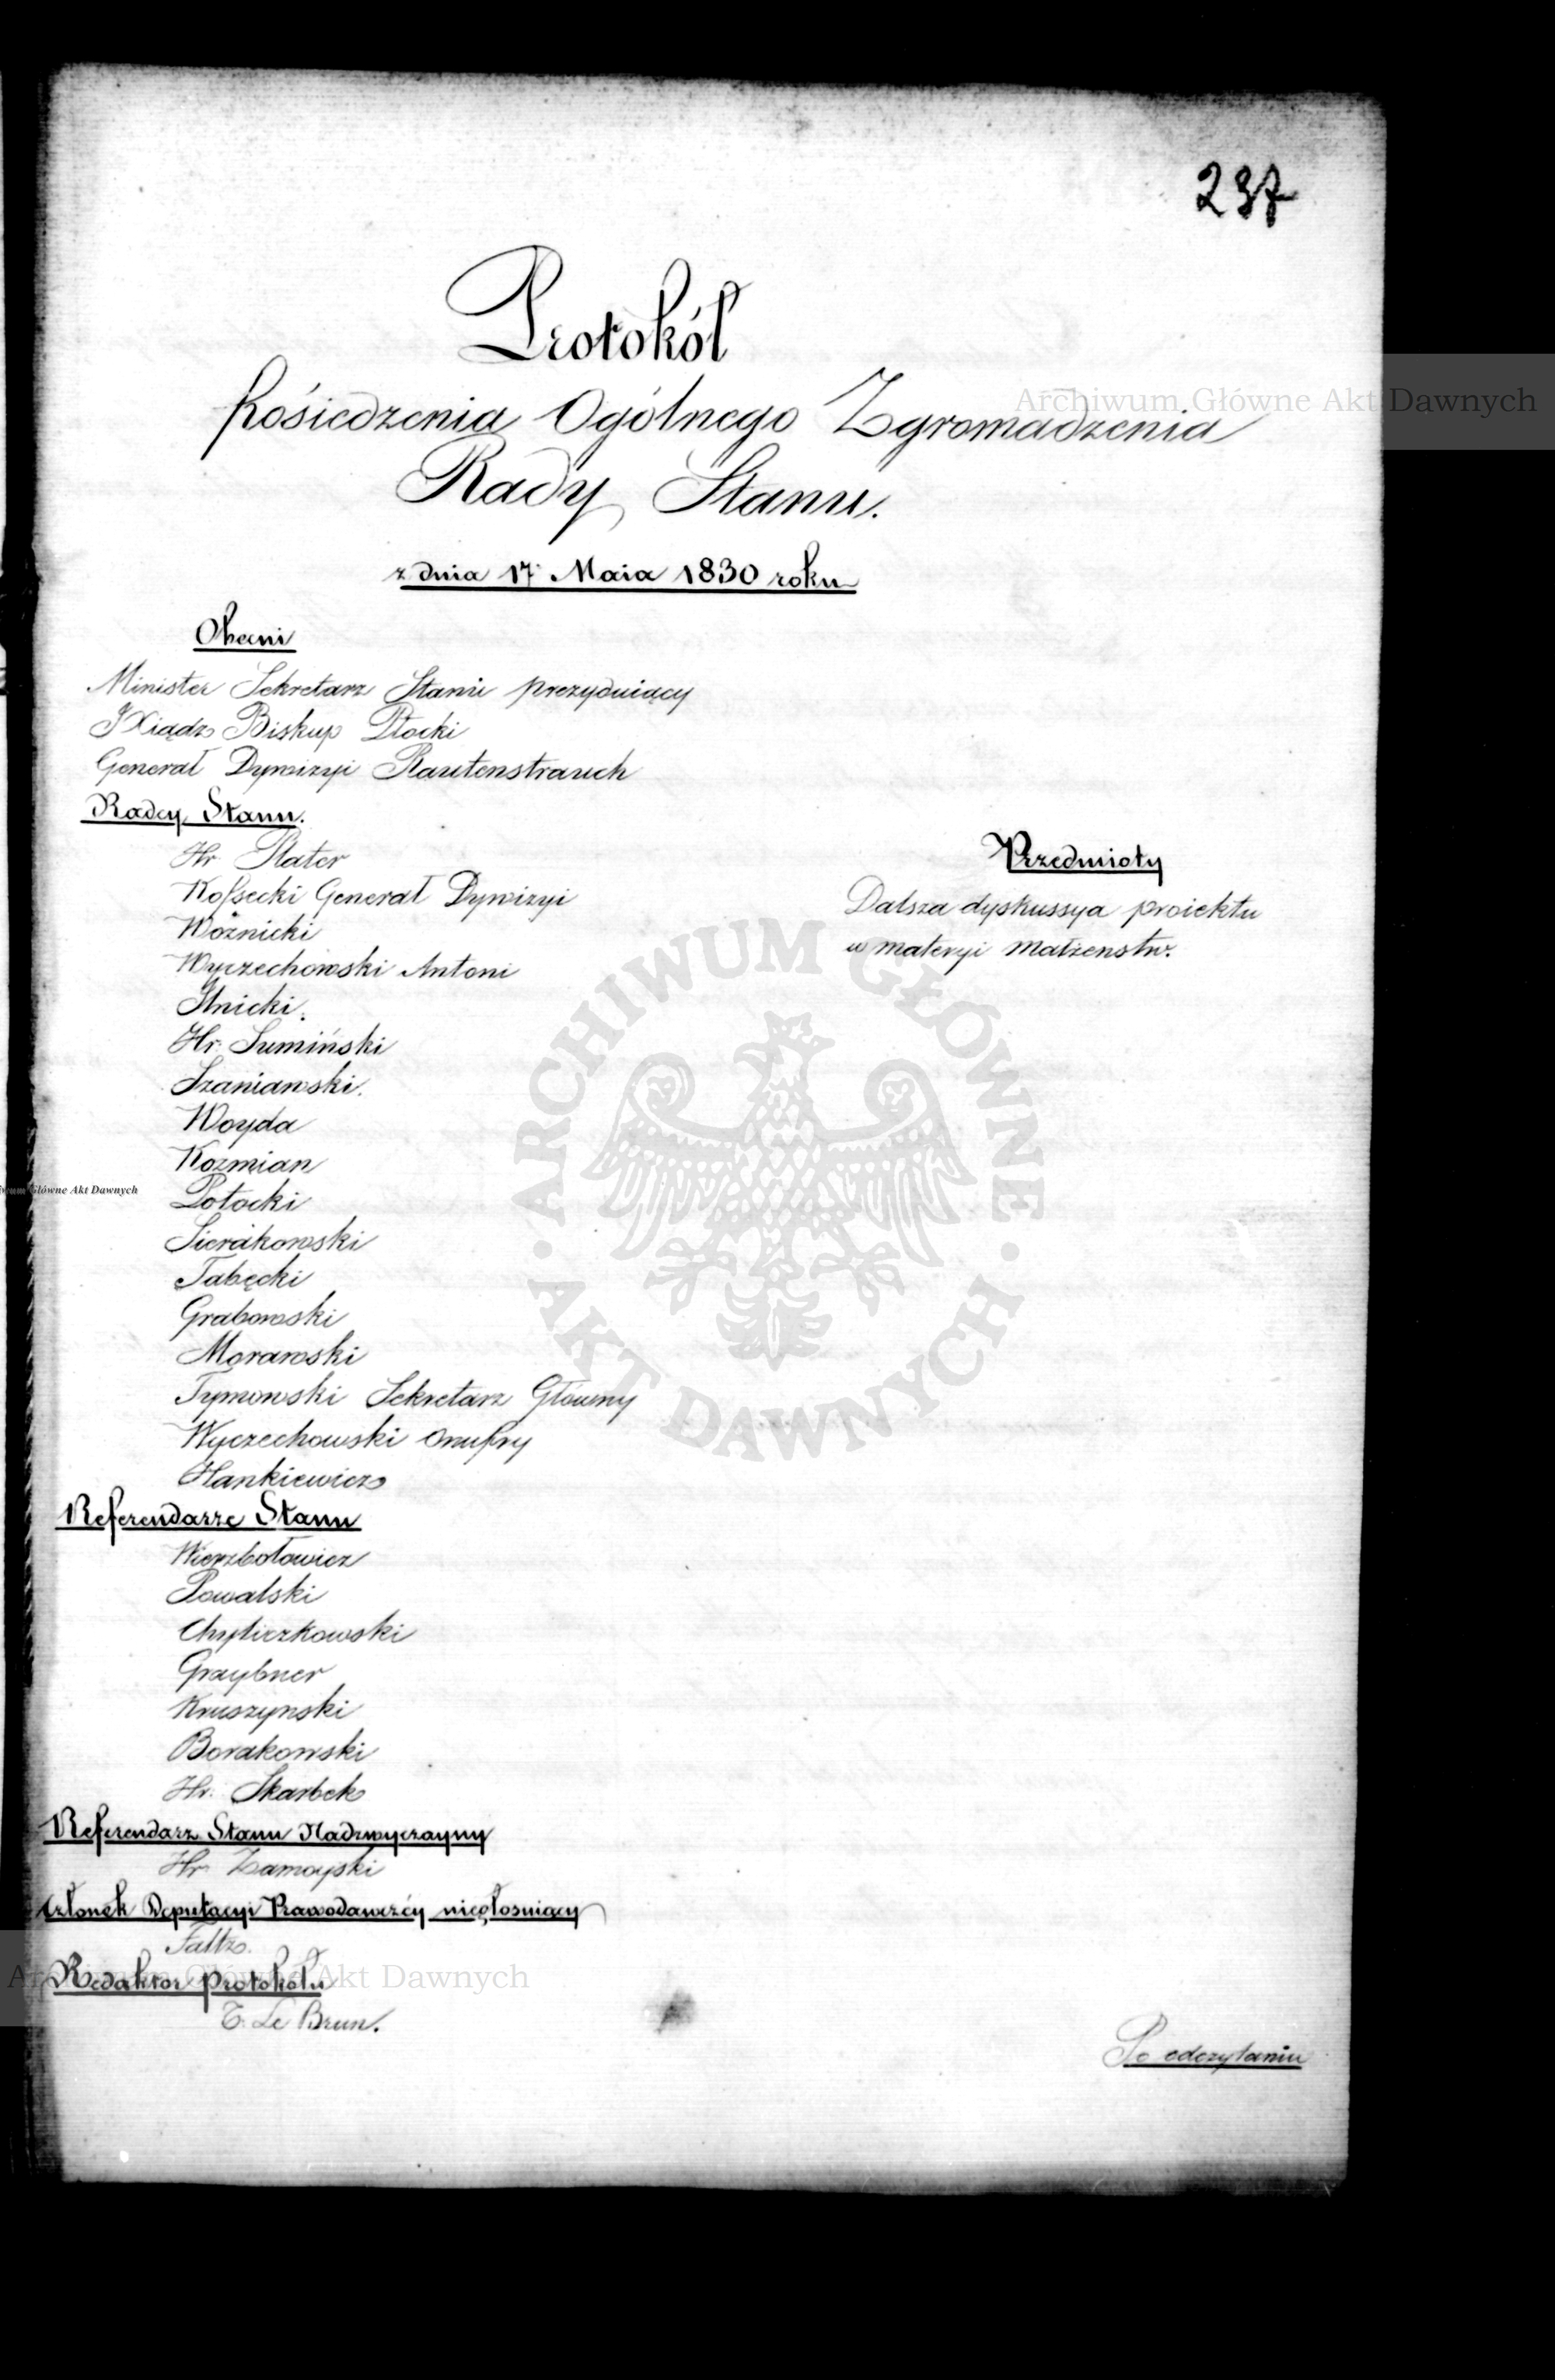 237
Protokół
Pośiedzenia Ogólnego Zgromadzenia
Rady Stanu.
z dnia 17. Maia 1830 roku
Obecni
Minister Sekretarz Stanu prezyduiący
JXiądz Biskup Płocki
Generał Dywizyi Rautenstrauch
Radcy Stanu.
Hr. Plater
Kossecki Generał Dywizyi
Woźnicki
Wyczechowski Antoni
Hr. Sumiński
Szaniawski.
Woyda
Kozmian
Potocki
Sierakowski
Tabęcki
Grabowski
Morawski
Tymowski Sekretarz Główny
Wyczechowski Onufry
Hankiewicz
Referendarze Stanu
Wierzbołowicz
Powalski
Chyliczkowski
Graybner
Kruszynski
Borakowski
Hr. Skarbek
Referendarz Stanu Nadzwyczayny
Hr. Zamoyski
Członek Deputacyi Prawodawczéy niegłosuiący
Faltz.
Redaktor protokołu
T. Le Brun.
Przedmioty
Dalsza dyskussya proiektu
w materyi małżenstw.
Po odczytaniu
Archiwum Główne Akt Dawnych
iwum Główne Akt Dawnych
ARCHIWUM GŁÓWNE
AKT DAWNYCH
Archiwum Główne Akt Dawnych